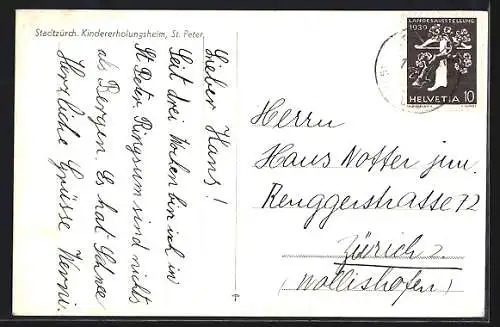 Stadtzürch. Kindererholungsheim, St. Peter.
Lieber Hans!
Seit drei Wochen bin ich in
St Peter. Ringsum sind nichts
als Bergen. Es hat Schnee
Herzliche Grüsse Werni.
LANDESAUSSTELLUNG
1939
HELVETIA 10
Herrn
Haus Notter jun.
Renggerstrasse 72
Zürich 2.
(Wollishofen)